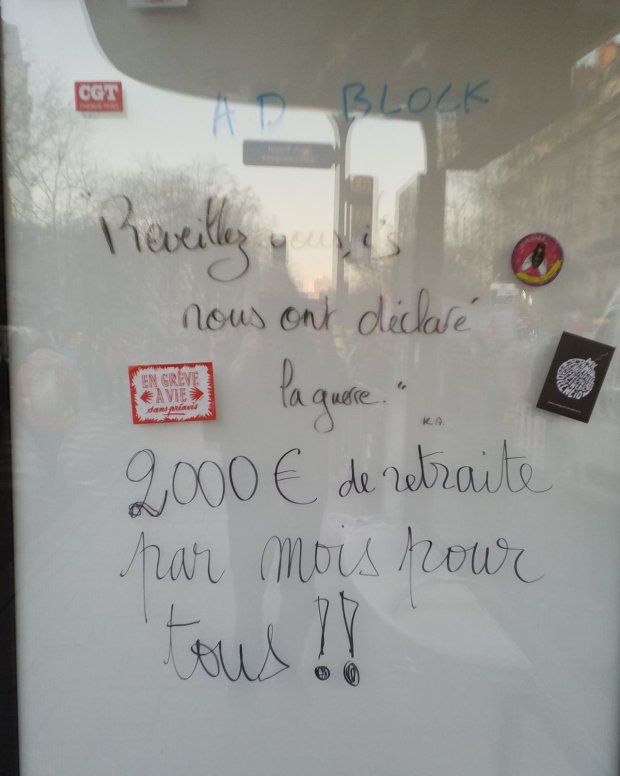 CGT
AD BLOCK
"Réveillez vous, ils
nous ont déclaré
la guerre."
K.A.
EN GRÈVE
À VIE
sans préavis
2000 € de retraite
par mois pour
tous !!